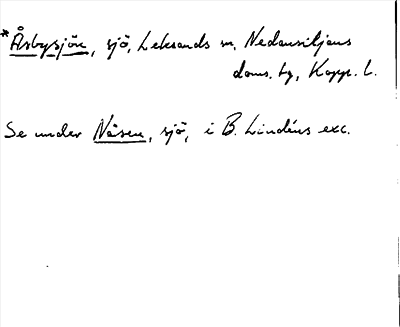 *Årbysjön, sjö, Leksands sn, Nedansiljans
doms. hg, Kopp. l.
Se under Nåsen, sjö, i B. Lindéns exc.